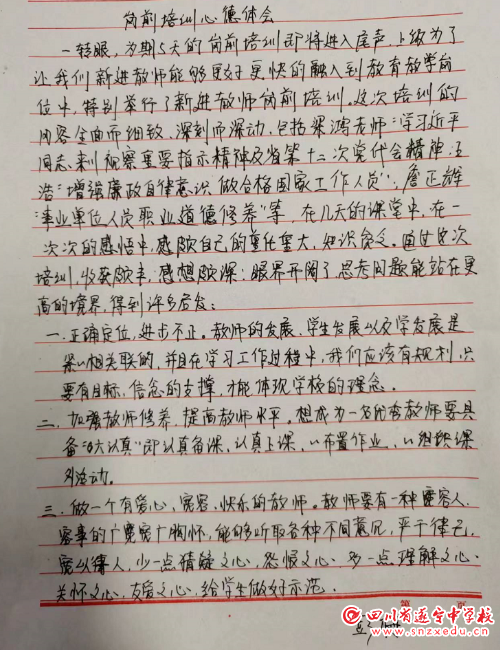 岗前培训心德体会
一转眼,为期5天的岗前培训即将进入尾声,上级为了
让我们新进教师能够更好更快的融入到教育教学岗
位中,特别举行了新进教师岗前培训。这次培训的
内容全面而细致,深刻而深动,包括梁鸿老师:"学习近平
同志来川视察重要指示精神及省第十二次党代会精神";汪
浩:"增强廉政自律意识"做合格国家工作人员";詹正雄
"事业单位人员职业道德修养"等,在几天的课堂中,在一
次次的感悟中,感颇自己的责任重大,知识贫乏。通过这次
培训,收获颇丰,感想颇深;眼界开阔了,思考问题能站在更
高的境界,得到许多启发:
一.正确定位,进步不止。教师的发展、学生发展以及学发展是
紧心相关联的,并且在学习工作过程中,我们应该有规划,只
要有目标、信念的支撑,才能体现学校的理念。
二、加强教师修养,提高教师水平。想成为一名优秀教师要具
备"六大认真"即认真备课,认真上课,〃布置作业,〃组织课
外活动。
三.做一个有爱心、宽容、快乐的教师。教师要有一种宽容人、
容事的广宽广胸怀,能够听取各种不同意见,严于律己,
宽以待人,少一点猜疑之心、怨恨之心、多一点理解之心、
关怀之心、友爱之心,给学生做好示范。
第
四川省遂宁中学校
www.snzxedu.cn